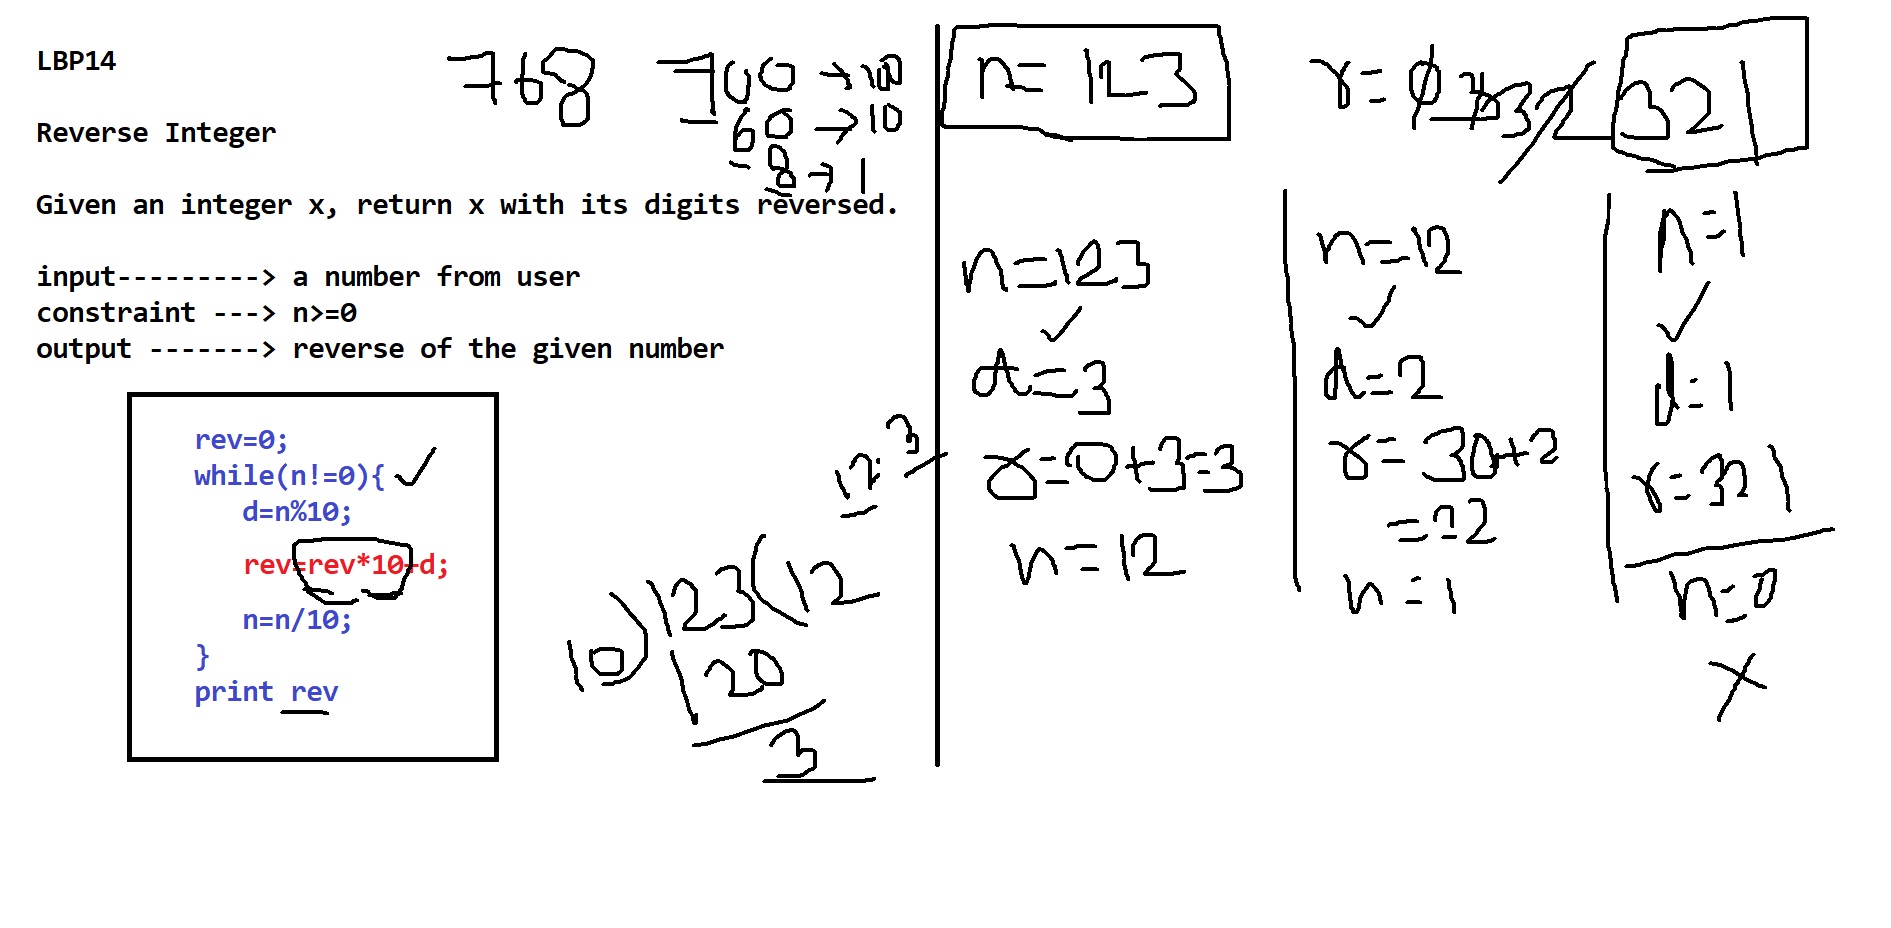 LBP14
Reverse Integer
Given an integer x, return x with its digits reversed.
input---------> a number from user
constraint ---> n>=0
output -------> reverse of the given number
rev=0;
while(n!=0){
d=n%10;
rev=rev*10+d;
n=n/10;
}
print rev
768
700 → 100
60 → 10
8 → 1
12.3
10)123(12
120
3
n= 123
r= 0 3 32 321
n=123
d=3
r=0+3=3
n=12
n=12
d=2
r=30+2
=32
n=1
n=1
d=1
r=321
n=0